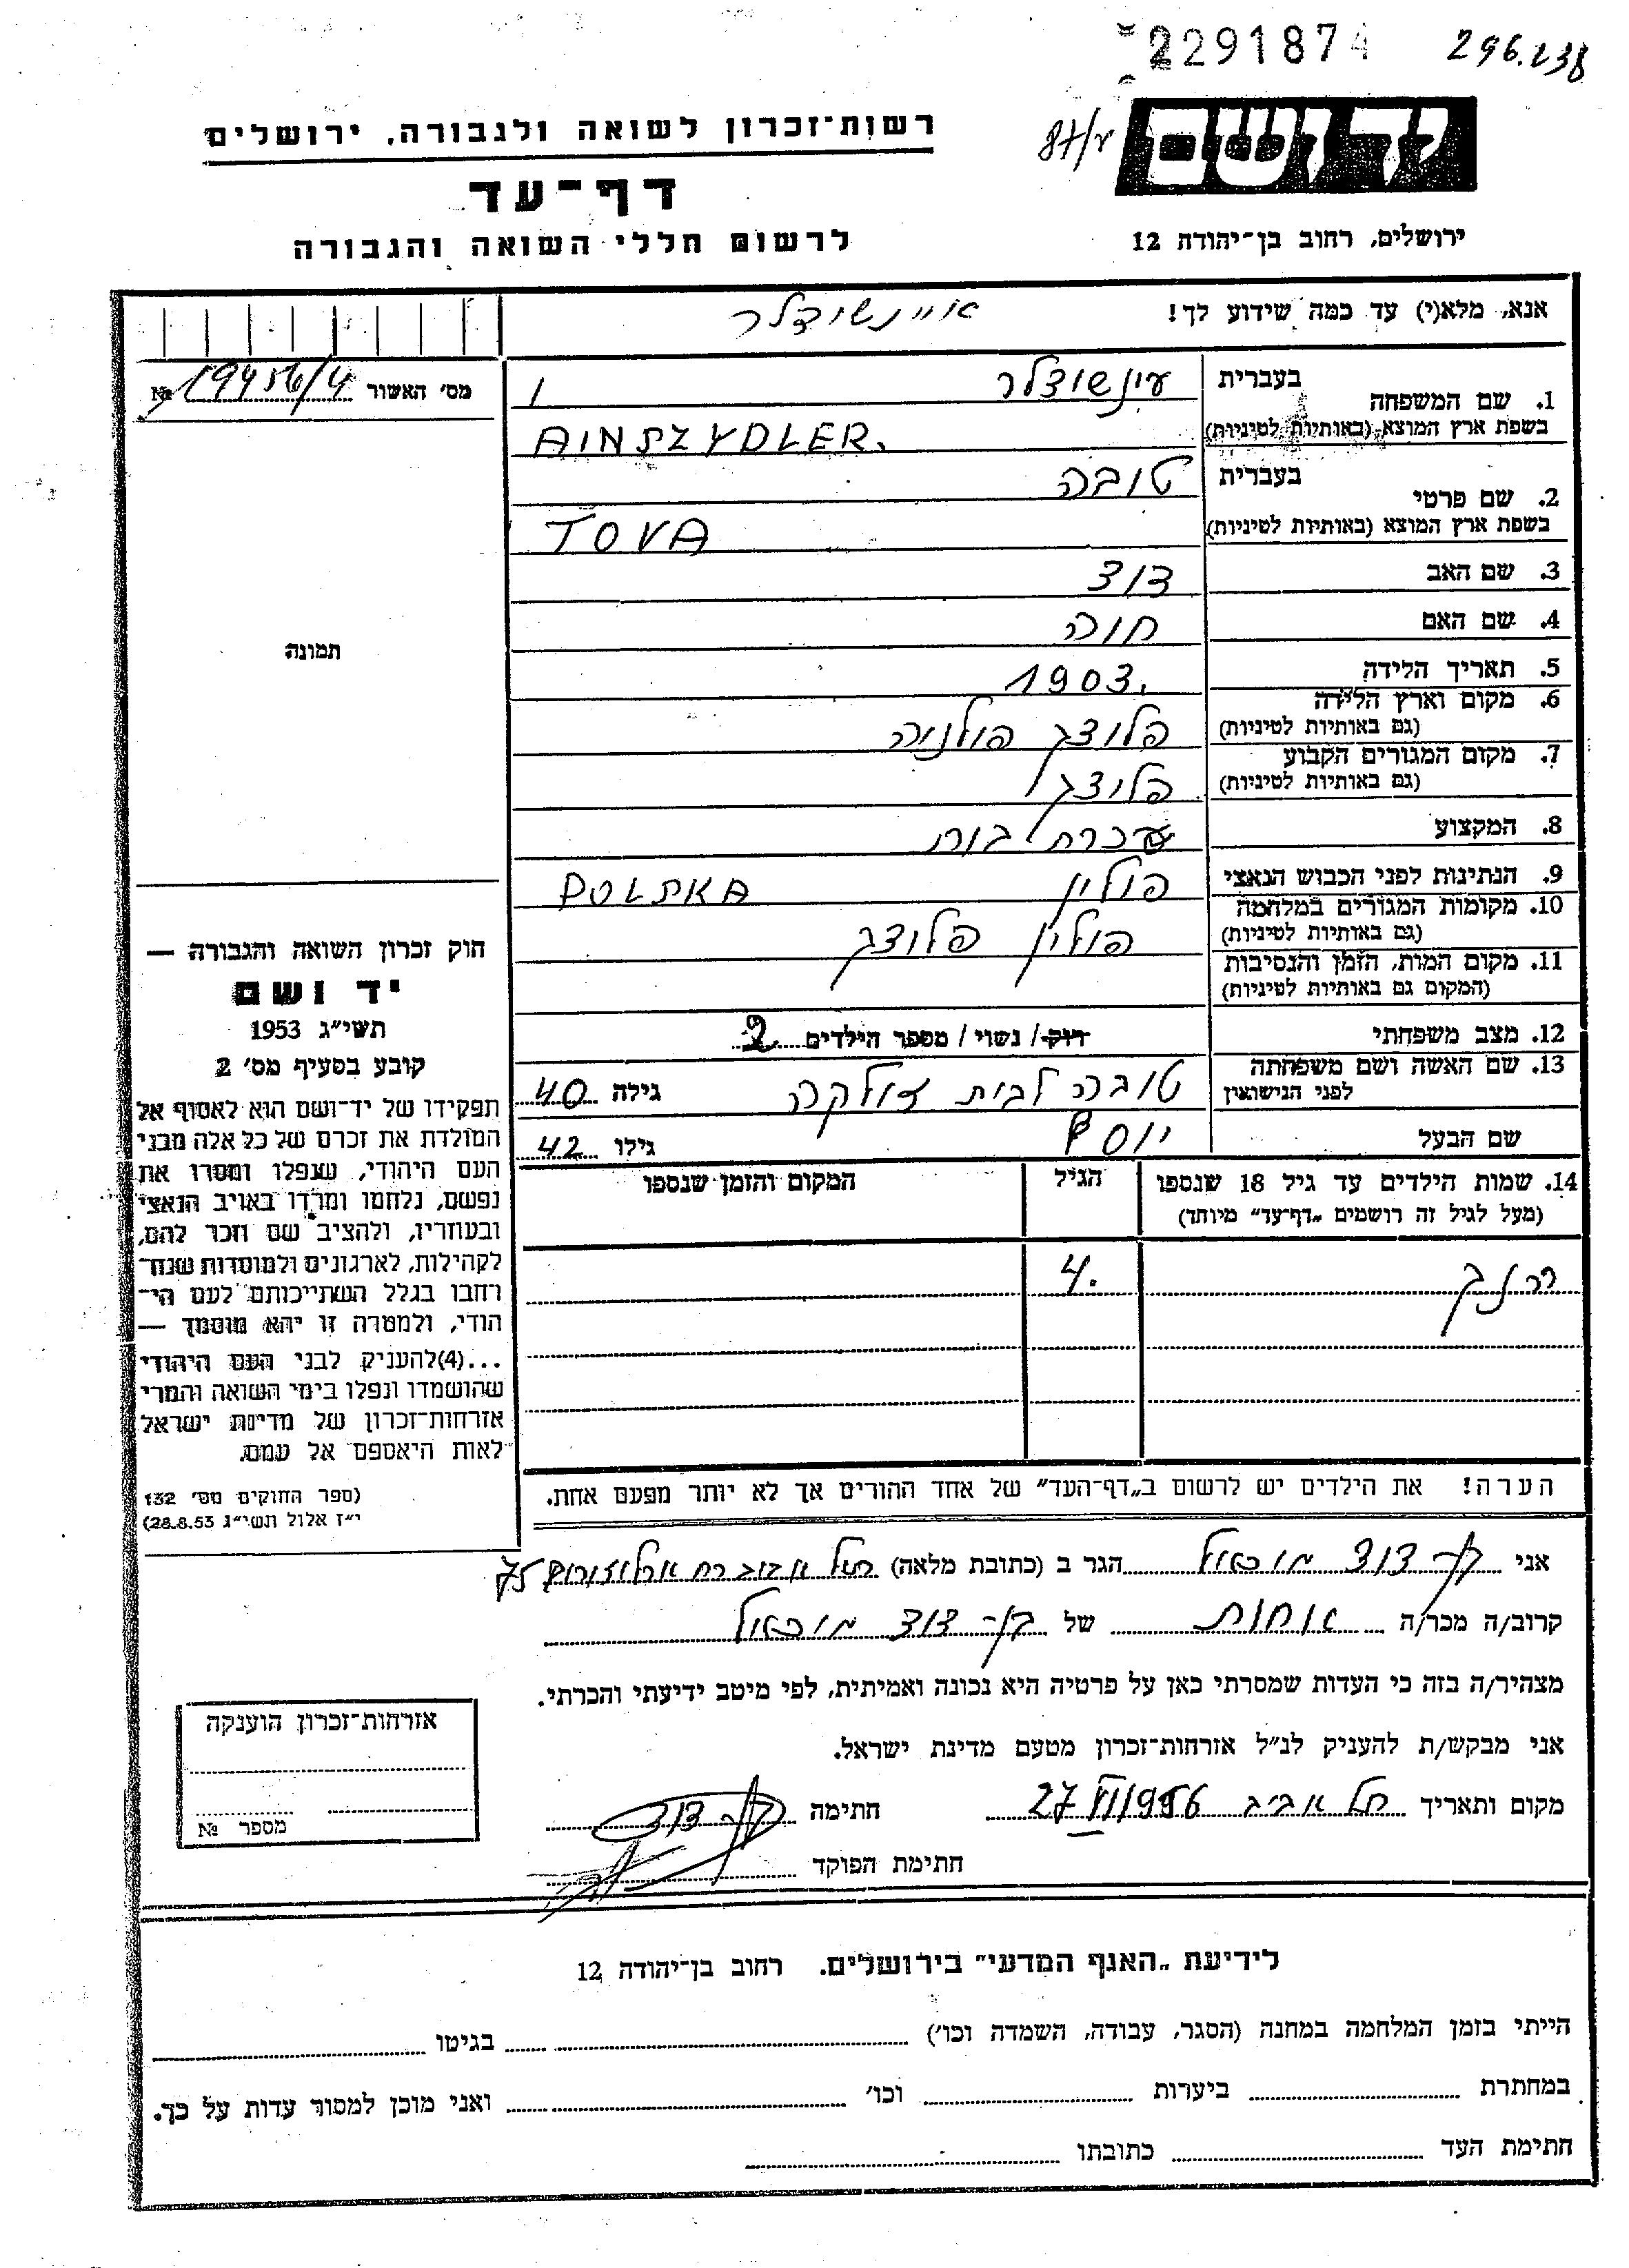 2291874
296.238
יד ושם
87/ץ
רשות־זכרון לשואה ולגבורה, ירושלים
דף־עד
לרשום חללי השואה והגבורה
ירושלים, רחוב בן־יהודה 12
אנא, מלא(י) עד כמה שידוע לך!
איינשידלר
מס׳ האשור 19456/4 №
1. שם המשפחה בעברית עינשידלר
בשפת ארץ המוצא (באותיות לטיניות) AINSZYDLER.
2. שם פרטי בעברית טובה
בשפת ארץ המוצא (באותיות לטיניות) TOVA
3. שם האב דוד
4. שם האם חוה
5. תאריך הלידה 1903.
6. מקום וארץ הלידה
(גם באותיות לטיניות) פלוצק פולניה
7. מקום המגורים הקבוע
(גם באותיות לטיניות) פלוצק
8. המקצוע עכרת בית
9. הנתינות לפני הכבוש הנאצי פולין POLSKA
10. מקומות המגורים במלחמה
(גם באותיות לטיניות) פולין פלוצק
11. מקום המות, הזמן והנסיבות
(המקום גם באותיות לטיניות)
12. מצב משפחתי רוק/ נשוי / מספר הילדים 2
13. שם האשה ושם משפחתה
לפני הנישואין טובה לבית דולקה גילה 40
שם הבעל יוסף גילו 42
14. שמות הילדים עד גיל 18 שנספו
(מעל לגיל זה רושמים „דף־עד״ מיוחד)
הגיל
המקום והזמן שנספו
הניק 4.
הערה! את הילדים יש לרשום ב„דף־העד״ של אחד ההורים אך לא יותר מפעם אחת.
תמונה
חוק זכרון השואה והגבורה —
יד ושם
תשי״ג 1953
קובע בסעיף מס׳ 2
תפקידו של יד־ושם הוא לאסוף אל
המולדת את זכרם של כל אלה מבני
העם היהודי, שנפלו ומסרו את
נפשם, נלחמו ומרדו באויב הנאצי
ובעוזריו, ולהציב שם וזכר להם,
לקהילות, לארגונים ולמוסדות שנח־
רחבו בגלל השתייכותם לעם הי־
הודי, ולמטרה זו יהא מוסמך —
...(4)להעניק לבני העם היהודי
שהושמדו ונפלו בימי השואה והמרי
אזרחות־זכרון של מדינת ישראל
לאות היאספם אל עמם.
(ספר החוקים מס׳ 132
י״ז אלול תשי״ג 28.8.53)
אני בן־דוד מיכאל הגר ב (כתובת מלאה) תל אביב רח ארלוזורוב 75
קרוב/ה מכר/ה אחות של בן־דוד מיכאל
מצהיר/ה בזה כי העדות שמסרתי כאן על פרטיה היא נכונה ואמיתית, לפי מיטב ידיעתי והכרתי.
אני מבקש/ת להעניק לנ״ל אזרחות־זכרון מטעם מדינת ישראל.
מקום ותאריך תל אביב 27/VI/1956 חתימה בן דוד
חתימת הפוקד
אזרחות־זכרון הוענקה
מספר №
לידיעת „האגף המדעי״ בירושלים. רחוב בן־יהודה 12
הייתי בזמן המלחמה במחנה (הסגר, עבודה, השמדה וכו׳) בגיטו
במחתרת ביערות וכו׳ ואני מוכן למסור עדות על כך.
חתימת העד כתובתו